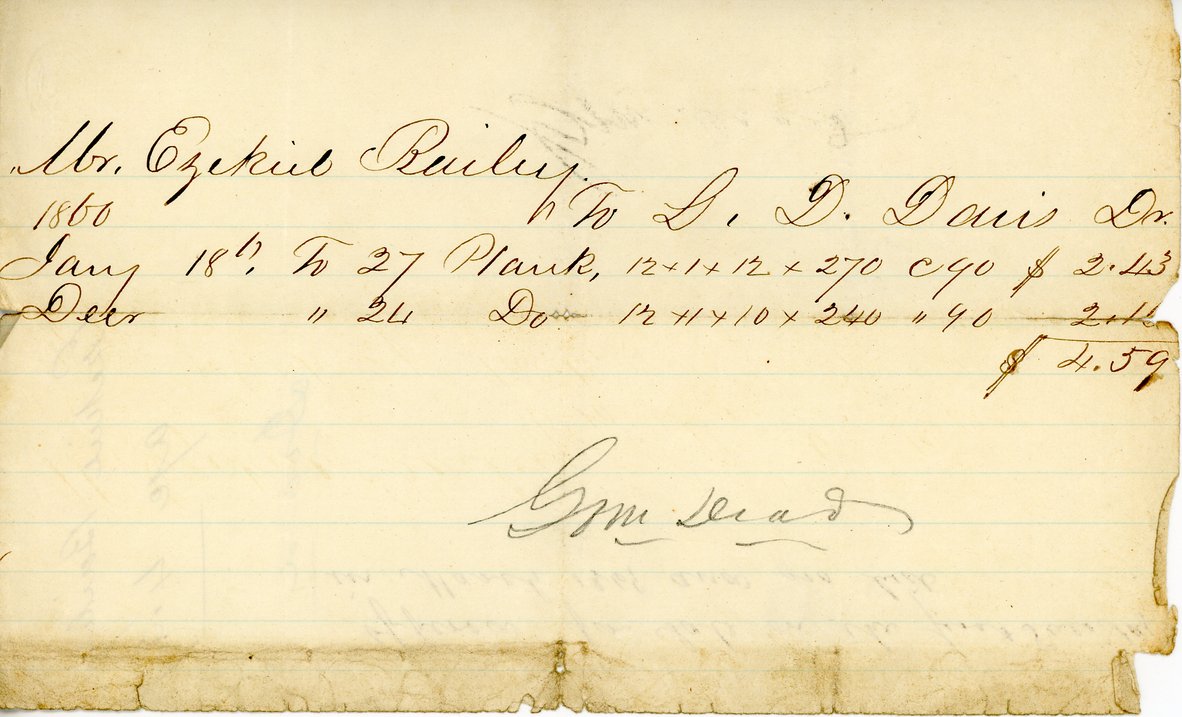 Mr. Ezekiel Bailey
1860 To S. D. Davis Dr.
Jany 18th, To 27 Plank, 12 x 1 x 12 x 270 c 90 $ 2.43
" 24 Do 12 x 1 x 10 x 240 " 90 2.16
$ 4.59